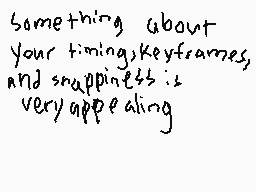 Something about
your timing, keyframes,
and snappiness is
very appealing